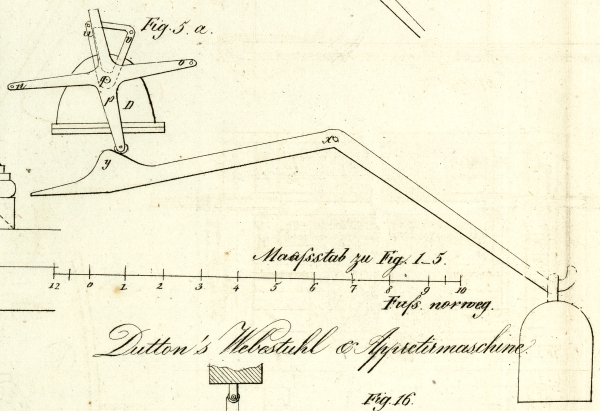 Fig. 5. a.
u v
n o
q
p D
y x
Maaſsstab zu Fig. 1_5.
12 0 1 2 3 4 5 6 7 8 9 10
Fuſs. norweg.
Dutton's Webestuhl & Appretirmaschine.
Fig. 16.